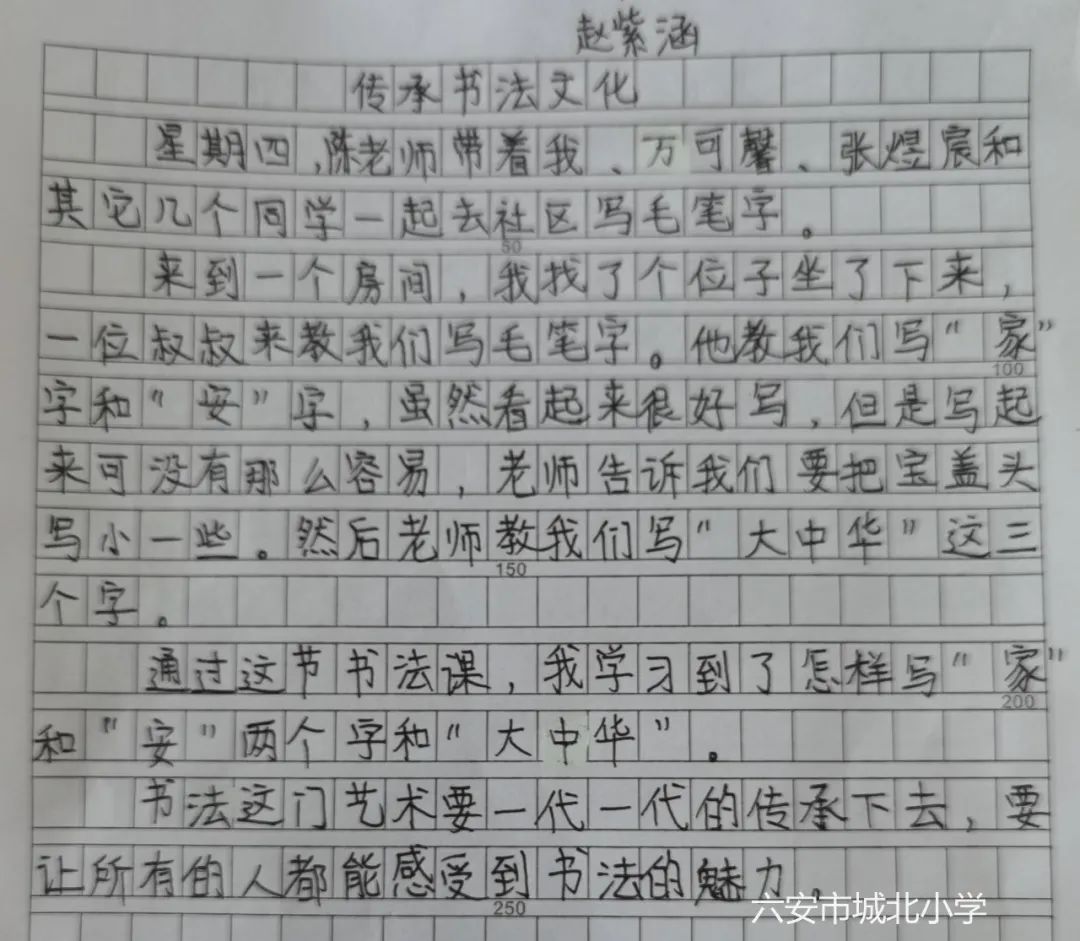 赵紫涵
传承书法文化
星期四,陈老师带着我、万可馨、张煜宸和
其它几个同学一起去社区写毛笔字。
50
来到一个房间,我找了个位子坐了下来,
一位叔叔来教我们写毛笔字。他教我们写“家”
100
字和“安”字,虽然看起来很好写,但是写起
来可没有那么容易,老师告诉我们要把宝盖头
写小一些。然后老师教我们写“大中华”这三
150
个字。
通过这节书法课,我学习到了怎样写“家”
200
和“安”两个字和“大中华”。
书法这门艺术要一代一代的传承下去,要
让所有的人都能感受到书法的魅力。
250
六安市城北小学